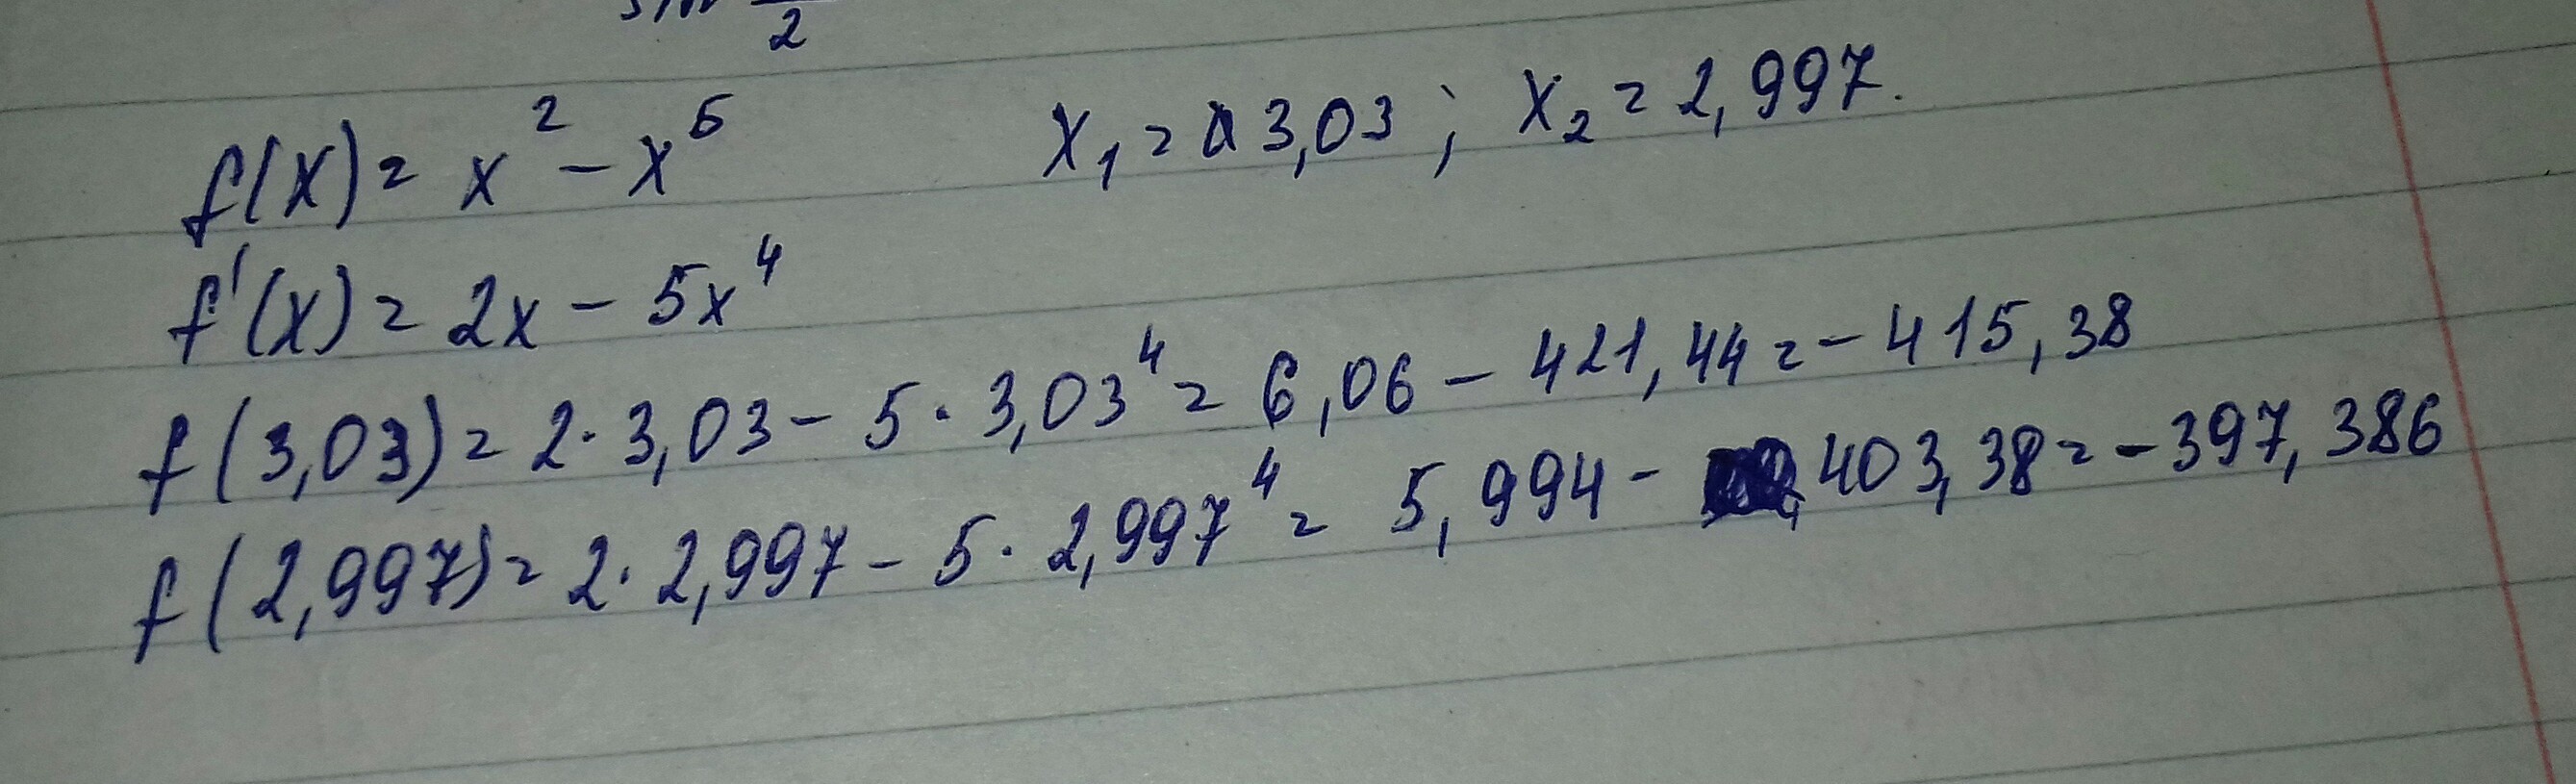 2
f(x) = x² - x⁵ x₁ = 3,03 ; x₂ = 2,997.
f'(x) = 2x - 5x⁴
f(3,03) = 2 · 3,03 - 5 · 3,03⁴ = 6,06 - 421,44 = - 415,38
f(2,997) = 2 · 2,997 - 5 · 2,997⁴ = 5,994 - 403,38 = - 397,386